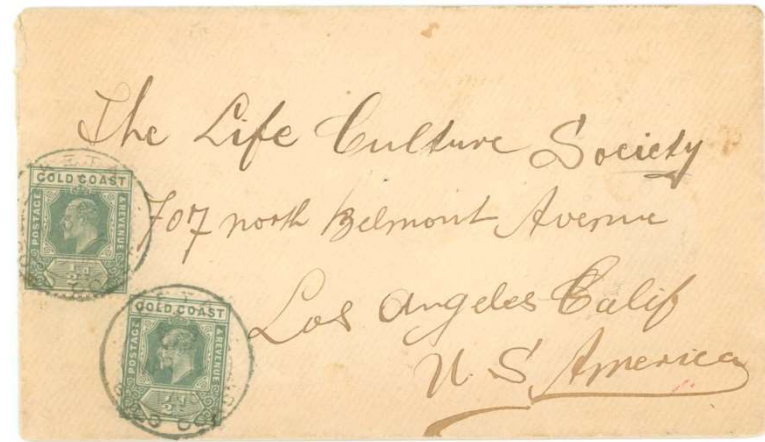 The Life Culture Society
707 north Belmont Avenue
Los Angeles Calif
U. S. America
GOLD COAST
POSTAGE
& REVENUE
½d
GOLD COAST
POSTAGE
& REVENUE
½d